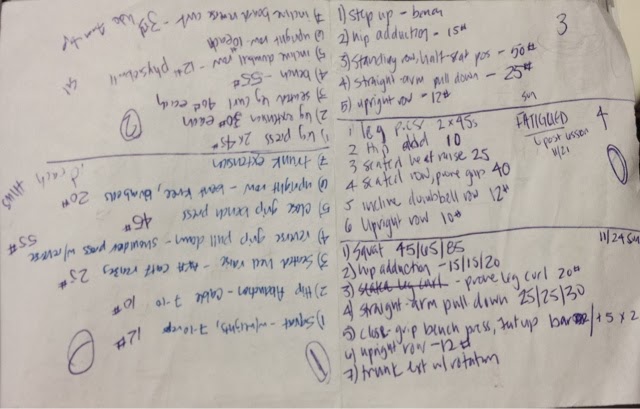 1) Step up - bench
2) hip adduction - 15#
3) Standing row, half seat pos - 50#
4) straight arm pull down - 25#
5) upright row - 12#
3
sun
1 leg press 2x45s
2 hip add 10
3 seated heat raise 25
4 seated row, prone grip 40
5 incline dumbbell row 12#
6 Upright row 10#
FATIGUED
post
11/21
4
1) Squat 45/65/85
2) hip adduction - 15/15/20
3) seated leg curl - prone leg curl 20#
4 straight-arm pull down 25/25/30
5) close-grip bench press, bar / +5 x 2
6) upright row - 12#
7) trunk ext w/rotation
11/24 sun
1) leg press 2x45#
2) leg extension 30# each
3) seated leg curl 40# each
4) bench - 55#
5) incline dumbbell row - 12#
6) upright row 10 each
7) incline bench
2
1) Squat - w/weights, 7-10 reps 12#
2) Hip Abduction - cable 7-10 10#
3) Seated heel raise - calf raises 25#
4) reverse grip pull down - shoulder press w/reverse 55#
5) close grip bench press 45#
6) upright row - bent knee, dumbbells 20#
7) trunk extension
11/15
1